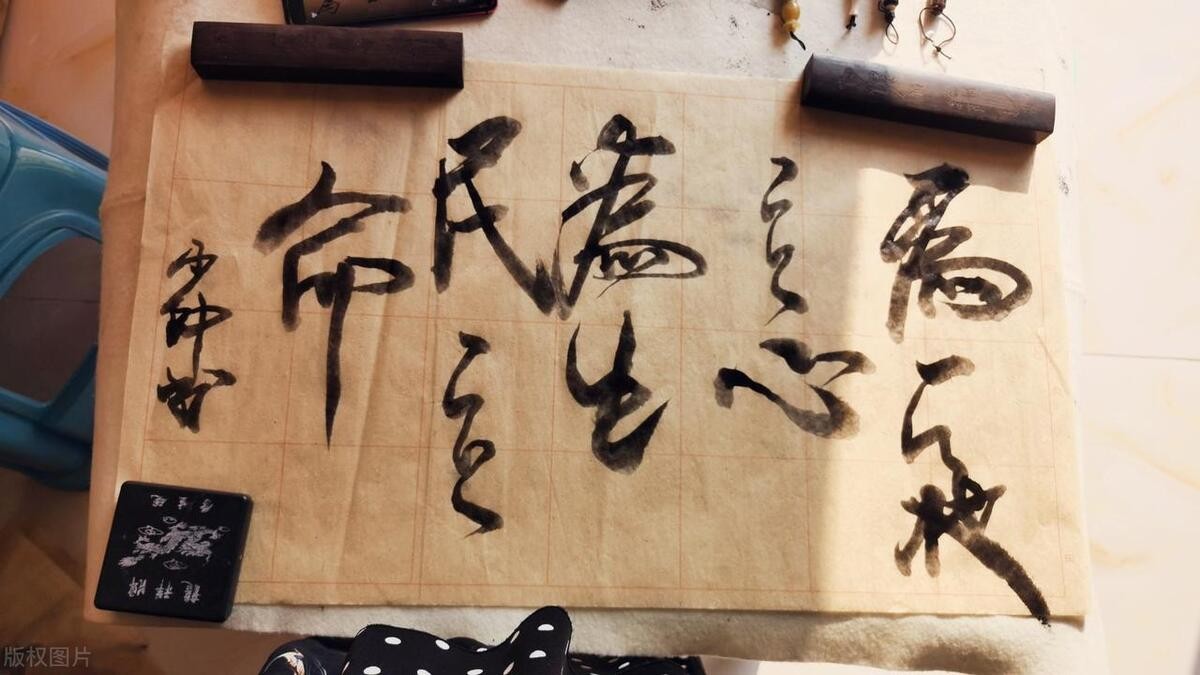 為天地
立心
為生
民立
命
書
版权图片